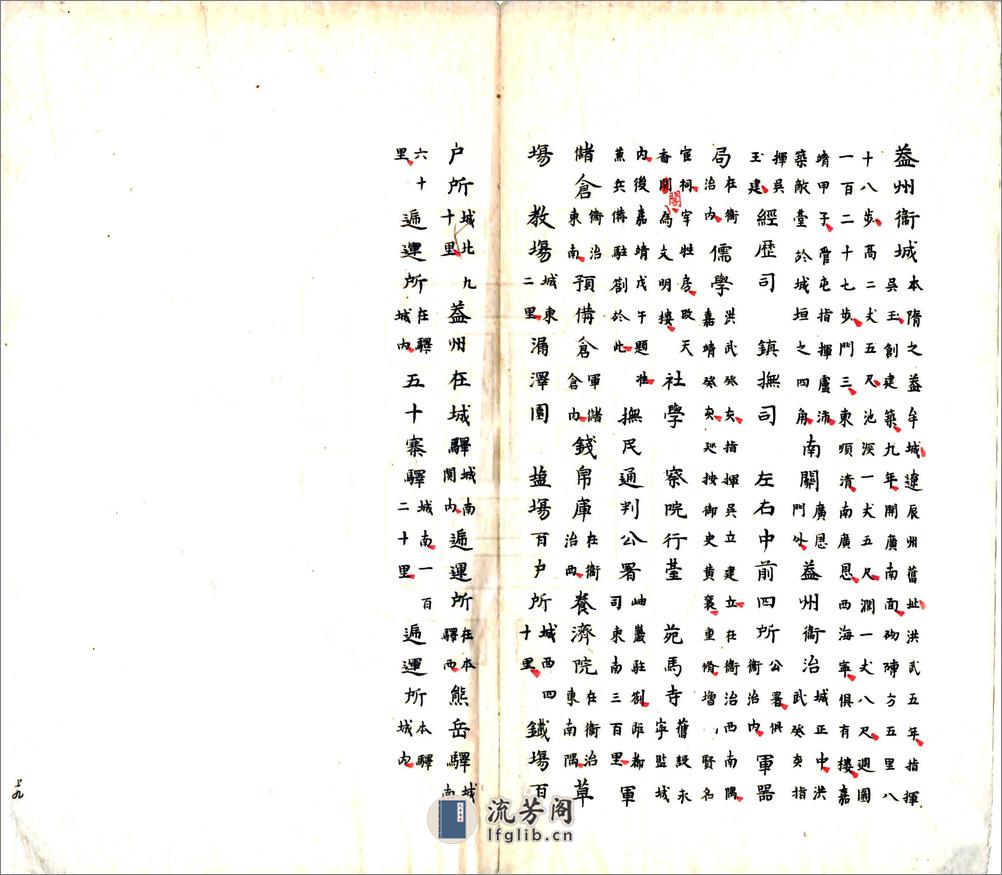 葢州衞城本隋之葢牟城遼辰州舊址洪武五年指揮吳玉創建築九年開廣南面砌磚方五里八
十八步高二丈五尺池深一丈五尺濶一丈八尺週圍一百二十七步門三東順清南廣恩西海寧俱有樓嘉
靖甲子管屯指揮盧沛築敵臺於城垣之四角南關廣恩門外葢州衞治城正中洪武癸亥指
揮吳玉建經歷司鎮撫司左右中前四所公署俱衞治內軍器
局在衞治內儒學洪武癸亥指揮吳立建立在衞治西南隅嘉靖癸亥廵按御史黃襄重脩增賢名
宦祠宰牲房改天香閣為文明樓社學察院行臺苑馬寺舊設永寧監城
內後嘉靖戊午題准兼兵備駐劄於此撫民通判公署岫巖駐劄距都司東南三百里軍
儲倉衞治東南預備倉軍儲倉內錢帛庫在衞治西養濟院在衞治東南隅草
場教場城東二里漏澤園鹽場百户所城西四十里鐵場百
户所城北九十里葢州在城驛城南関內遞運所在本驛西熊岳驛城南
六十里遞運所在驛城內五十寨驛城南一百二十里遞運所本驛城內
上九
流芳阁
lfglib.cn